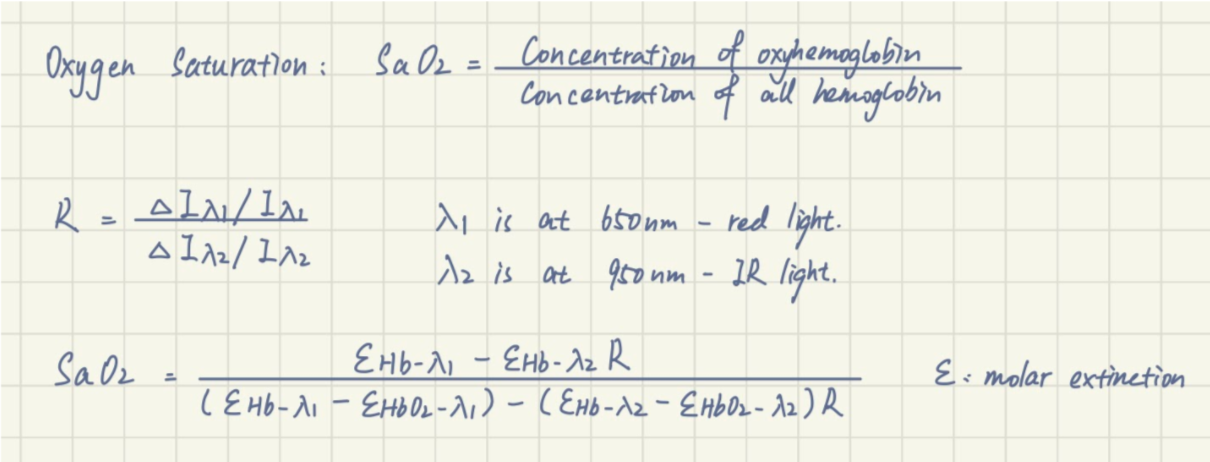 Oxygen Saturation: SaO₂ = Concentration of oxyhemoglobin / Concentration of all hemoglobin
R = ΔIλ1/Iλ1 / ΔIλ2/Iλ2
λ1 is at 650nm - red light.
λ2 is at 950nm - IR light.
SaO₂ = εHb-λ1 - εHb-λ2 R / (εHb-λ1 - εHbO₂-λ1) - (εHb-λ2 - εHbO₂-λ2)R
ε: molar extinction